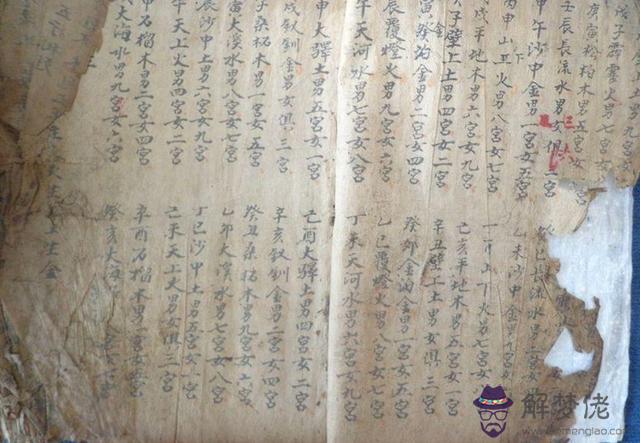 戊子霹靂火男七宮女
庚寅松柏木男五宮女
壬辰長流水男女俱三宮
甲午沙中金男一宮女五宮
丙申山下火男八宮女七宮
戊戌平地木男六宮女九宮
子壁上土男四宮女二宮
寅金泊金男二宮女四宮
辰覆燈火男九宮女六宮
午天河水男七宮女八宮
申大驛土男五宮女一宮
戌釵釧金男女俱三宮
子桑柘木男一宮女五宮
寅大溪水男八宮女七宮
辰沙中土男六宮女九宮
午天上火男四宮女二宮
申石榴木男二宮女四宮
大海水男九宮女六宮
巳長流水男二宮女
乙未沙中金男九宮女
火男七宮女
己亥平地木男五宮女一
辛丑壁上土男女俱三宮
癸卯金泊金男一宮女五宮
乙巳覆燈火男八宮女七宮
丁未天河水男六宮女九宮
己酉大驛土男四宮女二宮
辛亥釵釧金男二宮女四宮
癸丑桑柘木男九宮女六宮
乙卯大溪水男七宮女八宮
丁巳沙中土男五宮女一宮
己未天上火男女俱三宮
辛酉石榴木男一宮女五宮
癸亥大海
解梦佬
www.jiemenglao.com